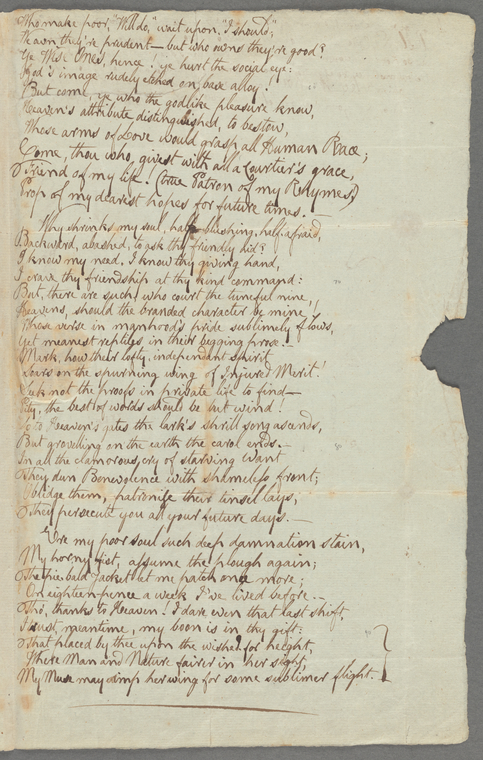 Who make poor, "Will do," wait upon, "I should;"
We own they're prudent — but who owns they're good?
Ye Wise Ones, hence! ye hurt the social eye:
God's image rudely etched on base alloy!
But come, ye who the godlike pleasure know,
Heaven's attribute distinguished, to bestow,
Whose arms of Love would grasp all Human Race;
Come, thou who givest with all a Courtier's grace,
Friend of my life! (true Patron of my Rhymes)
Prop of my dearest hopes for future times. —
Why shrinks my soul, half blushing, half afraid,
Backward, abashed, to ask thy friendly aid?
I know my need, I know thy giving hand,
I crave thy friendship at thy kind command:
But, there are such, who court the tuneful nine,
Heavens, should the branded character be mine,
Whose verse in manhood's pride sublimely flows,
Yet meanest reptiles in their begging prose. —
Mark, how their lofty, independant spirit
Soars on the spurning wing of Injured Merit!
Seek not the proofs in private life to find —
Pity, the best of words should be but wind!
So to Heaven's gates the lark's shrill song ascends,
But grovelling on the earth the carol ends. —
In all the clamorous cry of starving Want
They dun Benevolence with shameless front;
Oblidge them, patronise their tinsel lays,
They persecute you all your future days. —
E're my poor soul such deep damnation stain,
My horny fist, assume the plough again;
The pie-bald Jacket let me patch once more;
On eighteen-pence a week I've lived before. —
Tho', thanks to Heaven! I dare even that last shift,
I trust, meantime, my boon is in thy gift:
That placed by thee upon the wished for height,
Where Man and Nature fairer in her sight,
My Muse may imp her wing for some sublimer flight. —